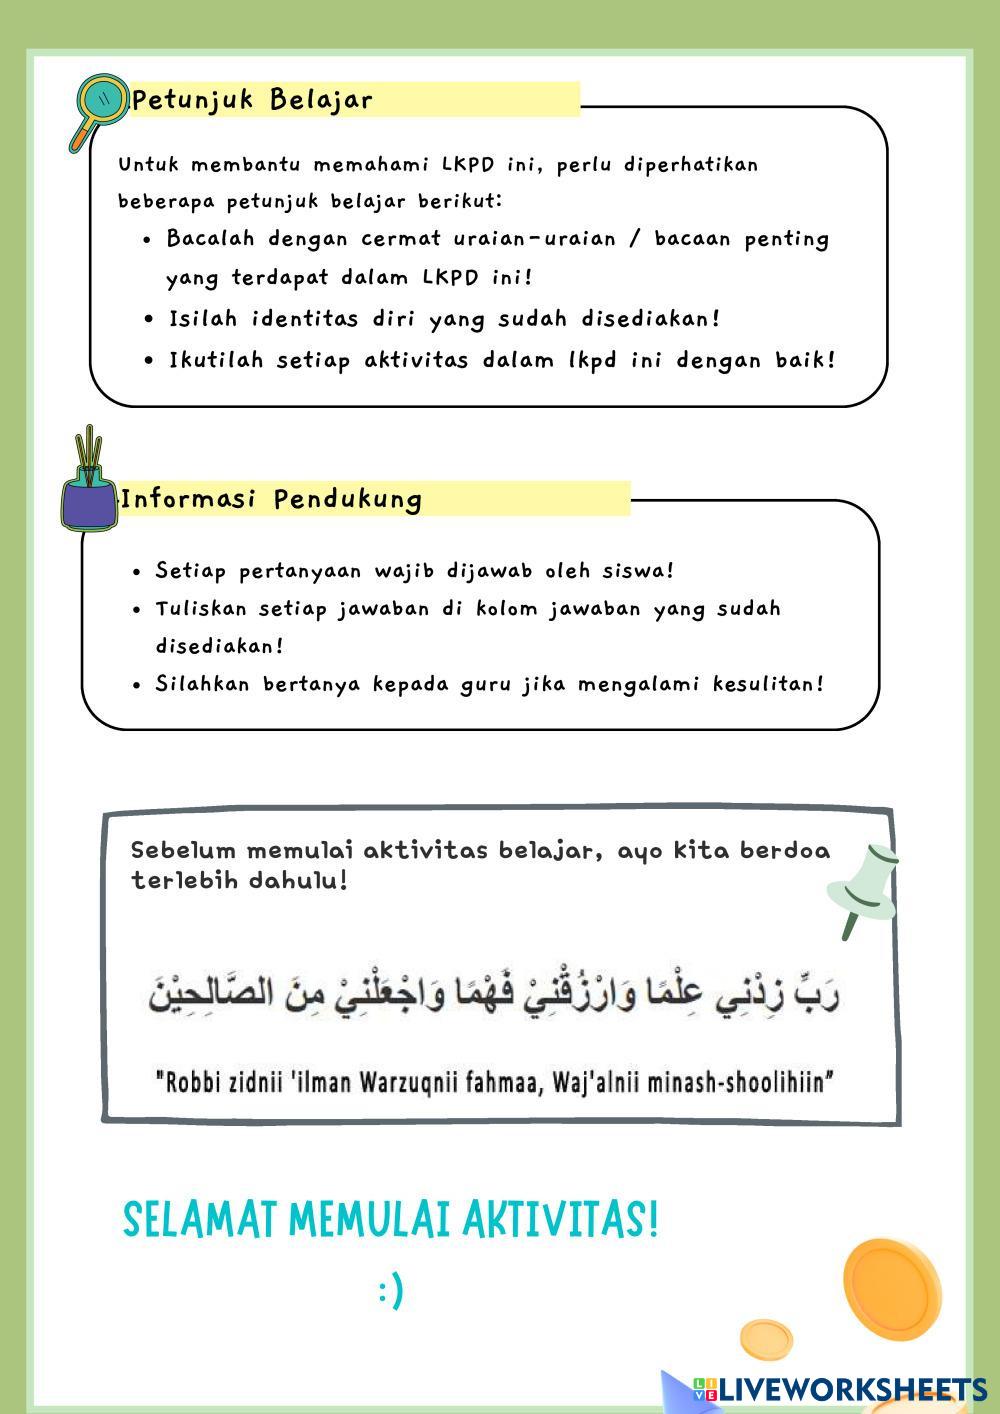 Petunjuk Belajar
Untuk membantu memahami LKPD ini, perlu diperhatikan
beberapa petunjuk belajar berikut:
• Bacalah dengan cermat uraian-uraian / bacaan penting
yang terdapat dalam LKPD ini!
• Isilah identitas diri yang sudah disediakan!
• Ikutilah setiap aktivitas dalam lkpd ini dengan baik!
Informasi Pendukung
• Setiap pertanyaan wajib dijawab oleh siswa!
• Tuliskan setiap jawaban di kolom jawaban yang sudah
disediakan!
• Silahkan bertanya kepada guru jika mengalami kesulitan!
Sebelum memulai aktivitas belajar, ayo kita berdoa
terlebih dahulu!
رَبِّ زِدْنِي عِلْمًا وَارْزُقْنِيْ فَهْمًا وَاجْعَلْنِيْ مِنَ الصَّالِحِيْنَ
"Robbi zidnii 'ilman Warzuqnii fahmaa, Waj'alnii minash-shoolihiin”
SELAMAT MEMULAI AKTIVITAS!
:)
LIVE LIVEWORKSHEETS